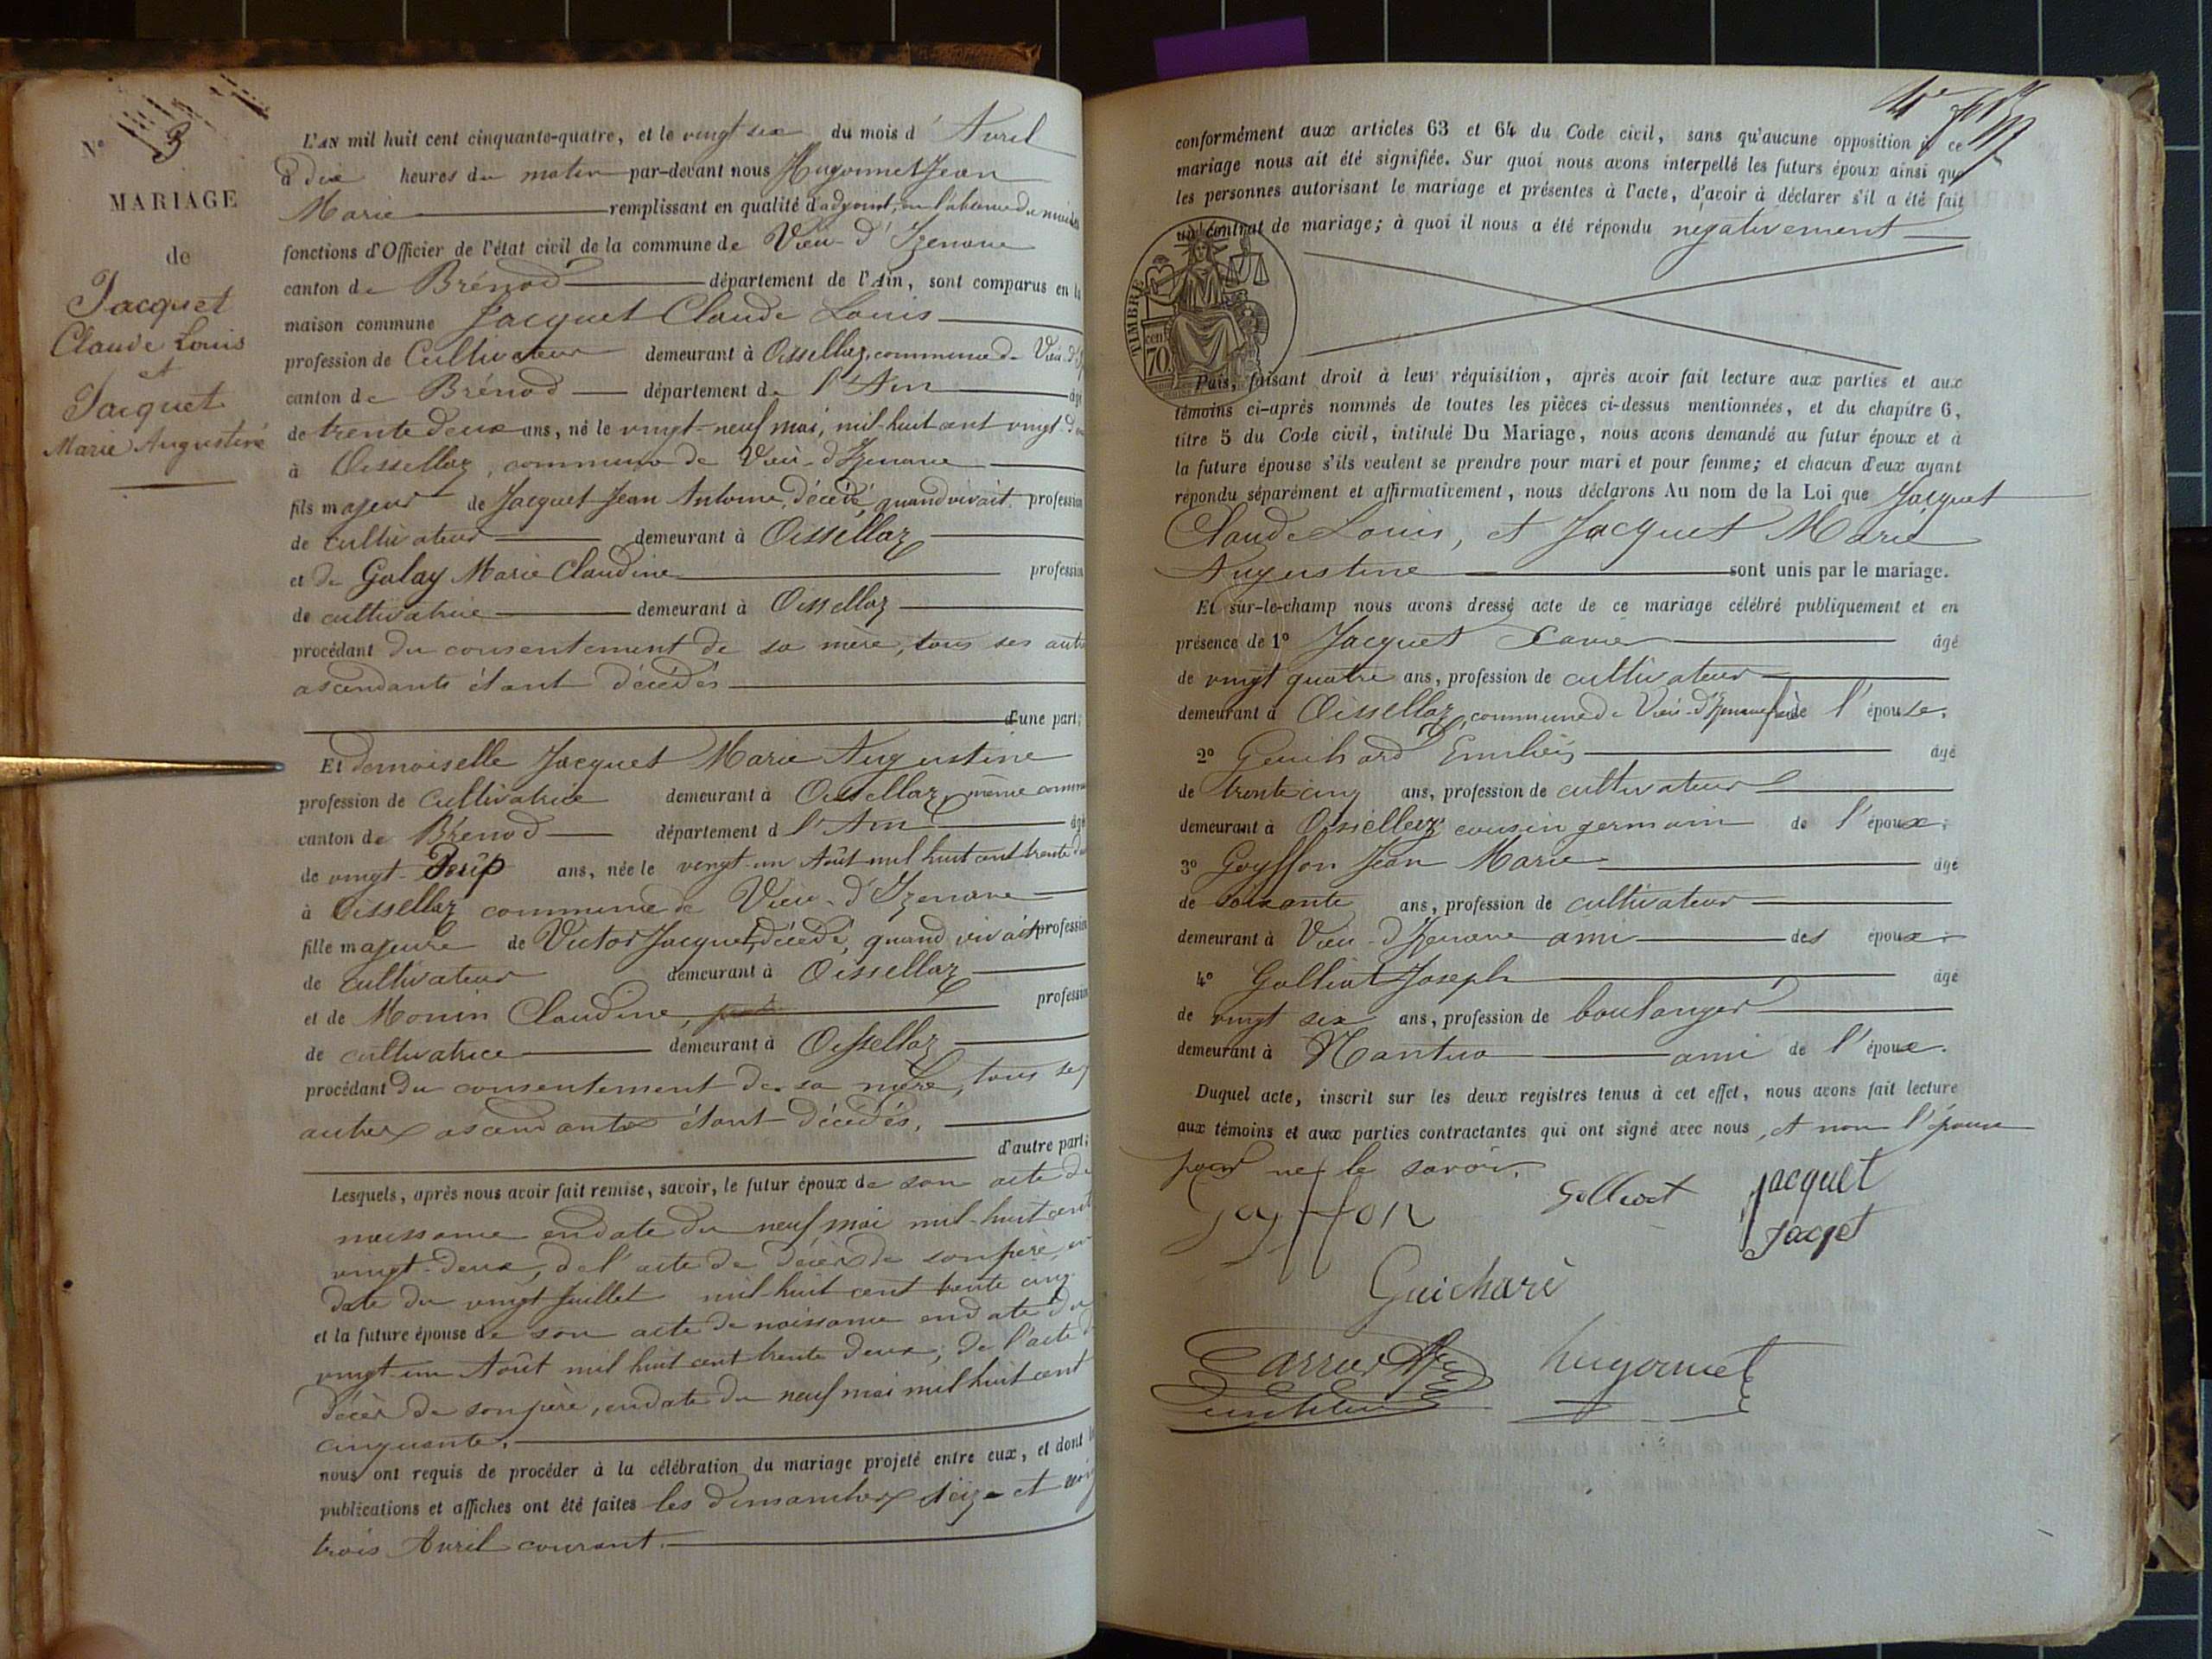 N° 3
MARIAGE
de
Jacquet
Claude Louis
et
Jacquet
Marie Augustine
L'AN mil huit cent cinquante-quatre, et le vingt six du mois d'Avril
à dix heures du matin par-devant nous Hugonnet Jean
Marie remplissant en qualité d'adjoint, en l'absence du maire les
fonctions d'Officier de l'état civil de la commune de Vieu-d'Izenave
canton de Brénod département de l'Ain, sont comparus en la
maison commune Jacquet Claude Louis
profession de Cultivateur demeurant à Oissellaz, commune de Vieu-d'Iz
canton de Brénod département de l'Ain âgé
de trente deux ans, né le vingt-neuf mai, mil-huit cent vingt deux
à Oissellaz, commune de Vieu-d'Izenave
fils majeur de Jacquet Jean Antoine, décédé, quand vivait profession
de cultivateur demeurant à Oissellaz
et de Galay Marie Claudine profession
de cultivatrice demeurant à Oissellaz
procédant du consentement de sa mère, tous ses autres
ascendants étant décédés
d'une part;
Et demoiselle Jacquet Marie Augustine
profession de Cultivatrice demeurant à Oissellaz, même commune
canton de Brénod département d l'Ain âgé
de vingt- ans, née le vingt-un Août mil huit cent trente deux
à Oissellaz commune de Vieu-d'Izenave
fille majeure de Victor Jacquet, décédé, quand vivait profession
de cultivateur demeurant à Oissellaz
et de Monin Claudine, profession
de cultivatrice demeurant à Oissellaz
procédant du consentement de sa mère, tous ses
autres ascendants étant décédés.
d'autre part;
Lesquels, après nous avoir fait remise, savoir, le futur époux de son acte de
naissance en date du neuf mai mil-huit cent
vingt-deux, de l'acte de décès de son père, en
date du vingt Juillet mil-huit cent trente cinq
et la future épouse de son acte de naissance en date du
vingt-un Août mil huit cent trente deux, de l'acte de
décès de son père, en date du neuf mai mil-huit cent
cinquante.
nous ont requis de procéder à la célébration du mariage projeté entre eux, et dont les
publications et affiches ont été faites les dimanches seize et vingt
trois Avril courant.
conformément aux articles 63 et 64 du Code civil, sans qu'aucune opposition à ce
mariage nous ait été signifiée. Sur quoi nous avons interpellé les futurs époux ainsi que
les personnes autorisant le mariage et présentes à l'acte, d'avoir à déclarer s'il a été fait
un contrat de mariage; à quoi il nous a été répondu négativement
TIMBRE
cen
70.
Puis, faisant droit à leur réquisition, après avoir fait lecture aux parties et aux
témoins ci-après nommés de toutes les pièces ci-dessus mentionnées, et du chapitre 6,
titre 5 du Code civil, intitulé Du Mariage, nous avons demandé au futur époux et à
la future épouse s'ils veulent se prendre pour mari et pour femme; et chacun d'eux ayant
répondu séparément et affirmativement, nous déclarons Au nom de la Loi que Jacquet
Claude Louis, et Jacquet Marie
Augustine sont unis par le mariage.
Et sur-le-champ nous avons dressé acte de ce mariage célébré publiquement et en
présence de 1° Jacquet Xavier âgé
de vingt quatre ans, profession de cultivateur
demeurant à Oissellaz, commune de Vieu-d'Izenave frère de l'épouse.
2° Guichard Emilien âgé
de trente cinq ans, profession de cultivateur
demeurant à Oissellaz cousin germain de l'époux.
3° Goyffon Jean Marie âgé
de soixante ans, profession de cultivateur
demeurant à Vieu-d'Izenave ami des époux.
4° Golliat Joseph âgé
de vingt six ans, profession de boulanger
demeurant à Nantua ami de l'époux.
Duquel acte, inscrit sur les deux registres tenus à cet effet, nous avons fait lecture
aux témoins et aux parties contractantes qui ont signé avec nous, et non l'épouse
pour ne le savoir.
Goyffon Golliat Jacquet
Jacqet
Guichard
Carrier hugonnet